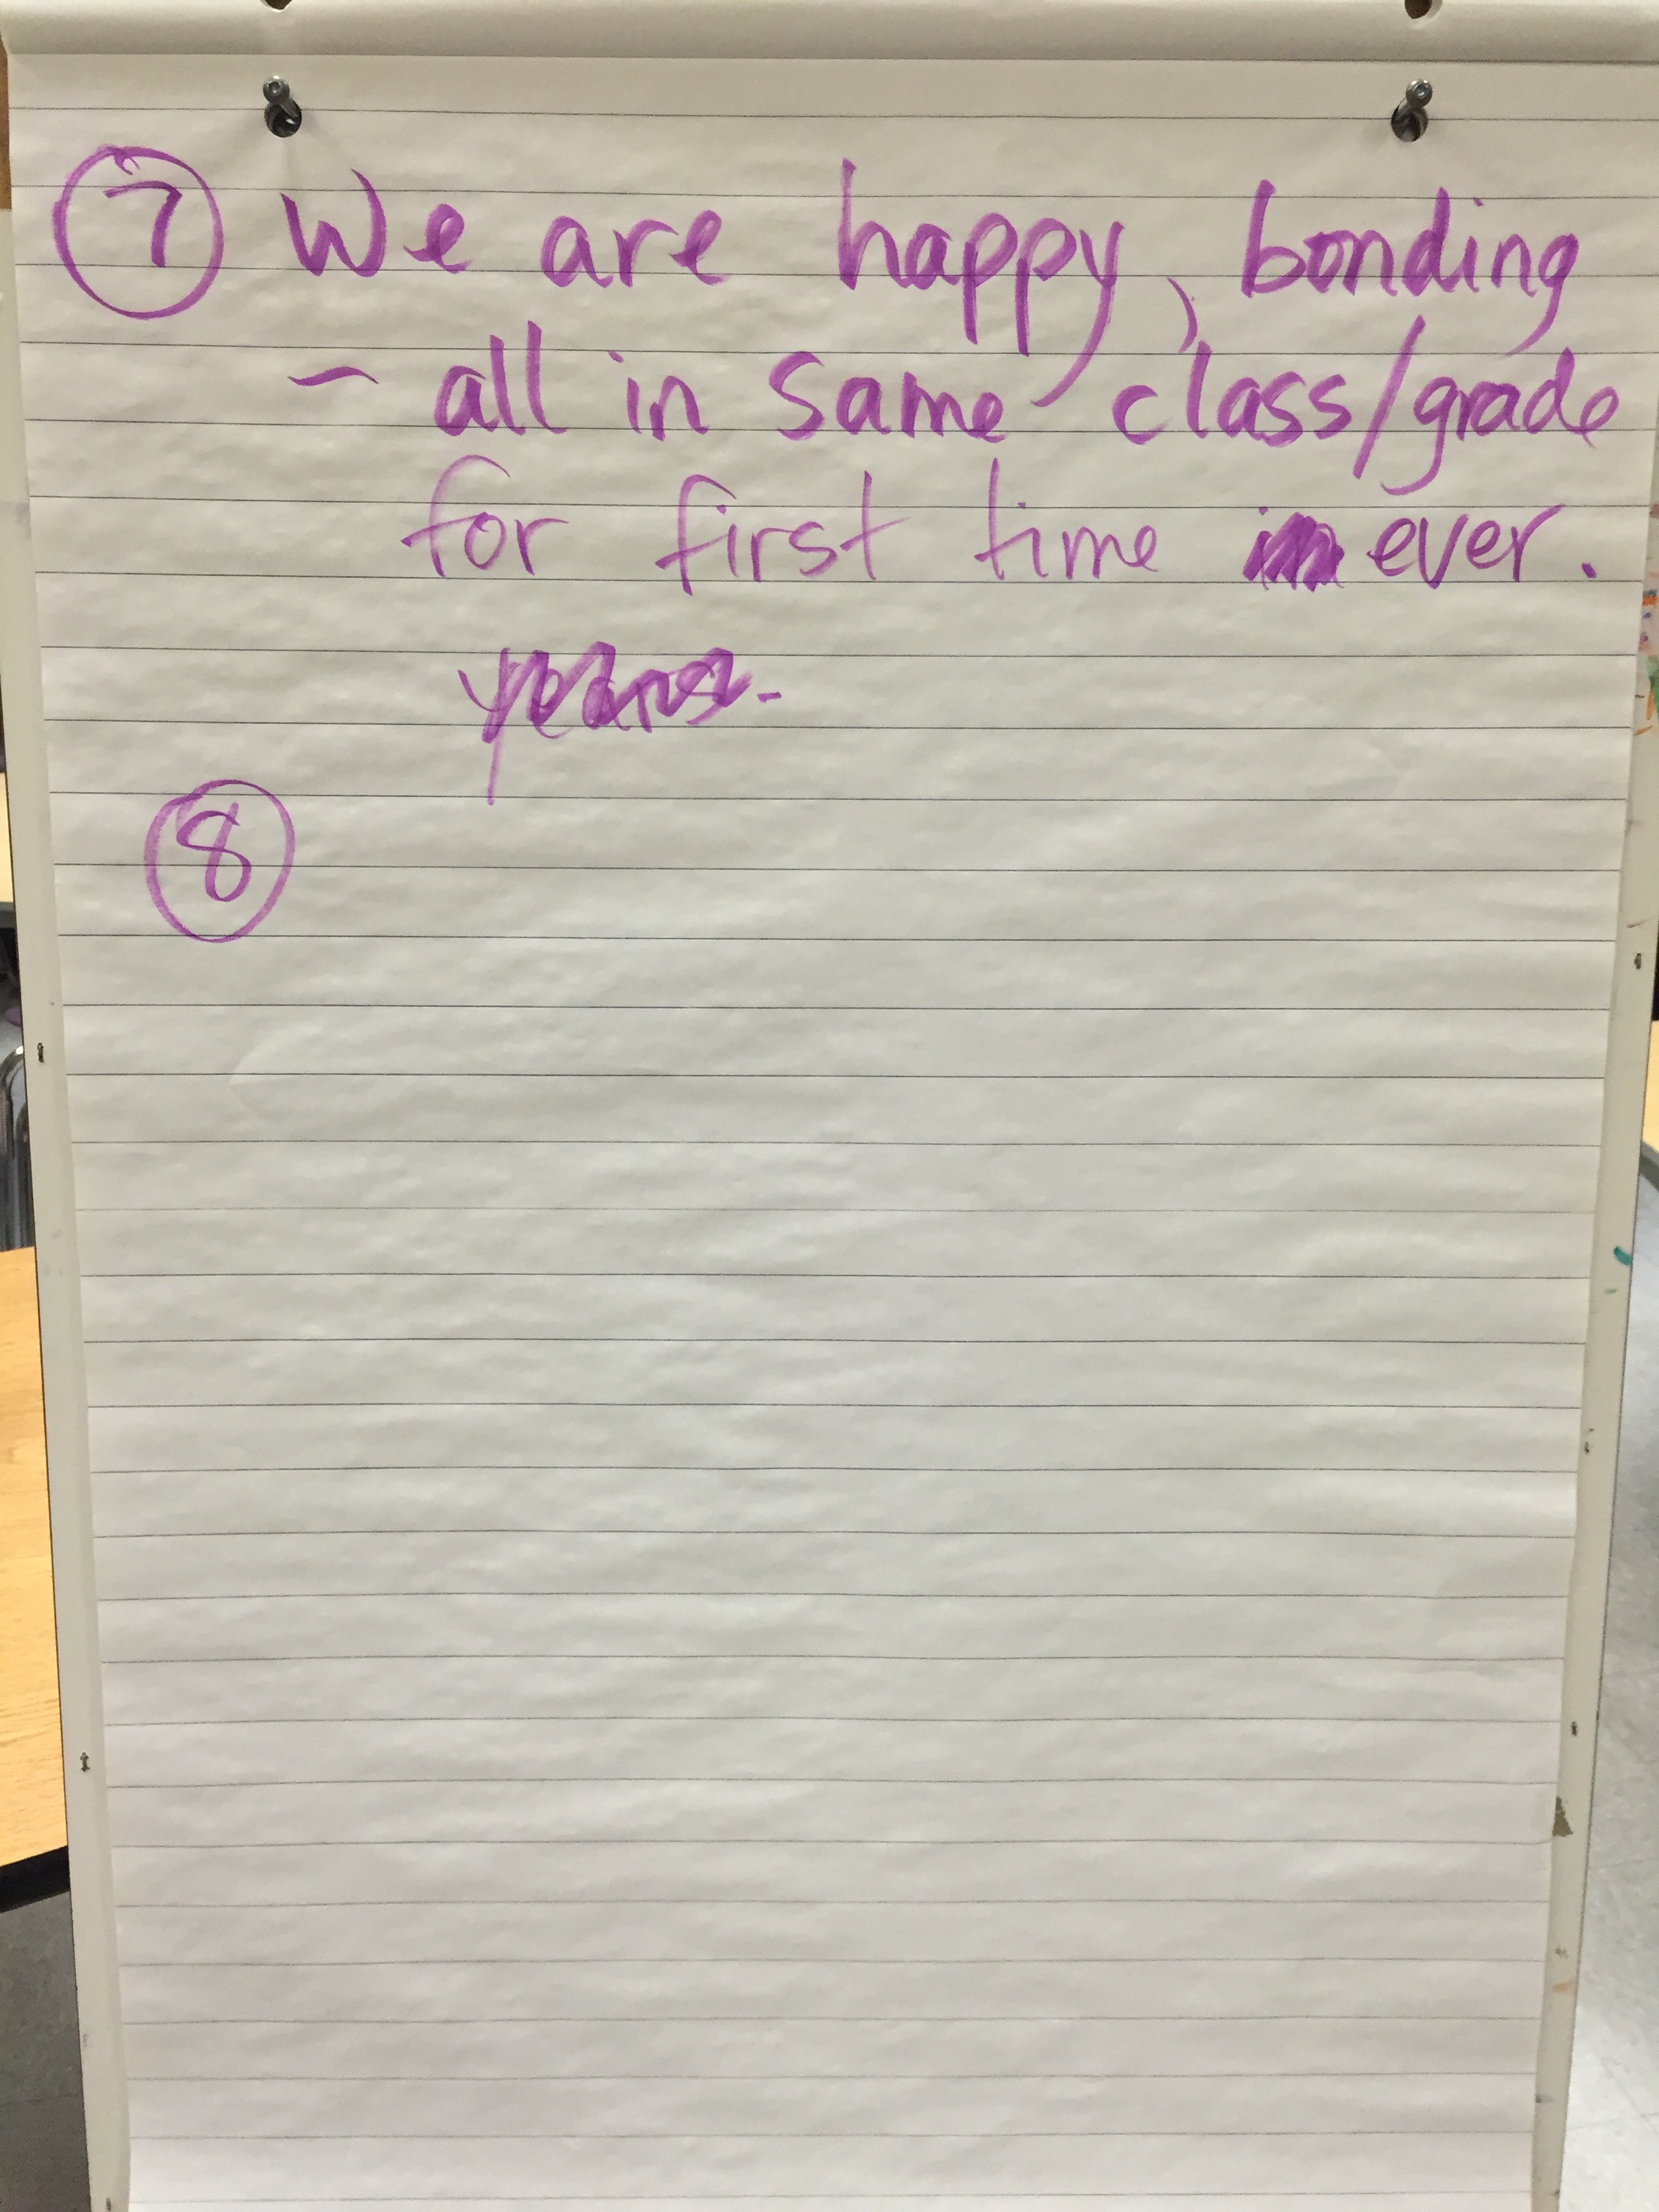 ⑦ We are happy, bonding
- all in same class/grade
for first time in ever.
years.
⑧